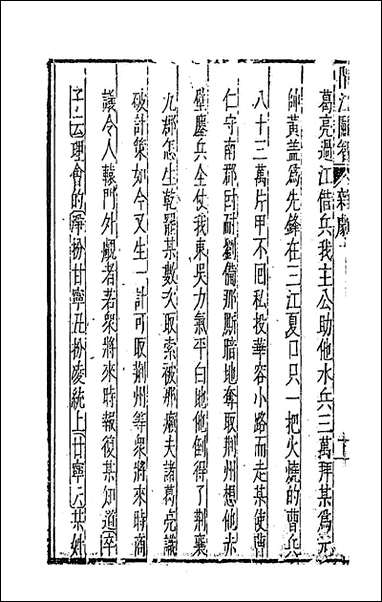 隔江鬭智 雜劇 十
葛亮過江借兵我主公助他水兵三萬拜某爲元
帥黃盖爲先鋒在三江夏口只一把火燒的曹兵
八十三萬片甲不囘私投華容小路而走某使曹
仁守南郡尀耐劉備那厮暗地奪取荆州想他赤
壁鏖兵全仗我東吳力氣平白地他倒得了荆襄
九郡怎生乾罷某數次取索被那癩夫諸葛亮識
破計策如今又生一計可取荆州等衆將來時商
議令人轅門外覷者若衆將來時報復某知道卒
子云理會的淨扮甘寧丑扮凌統上甘寧云某姓